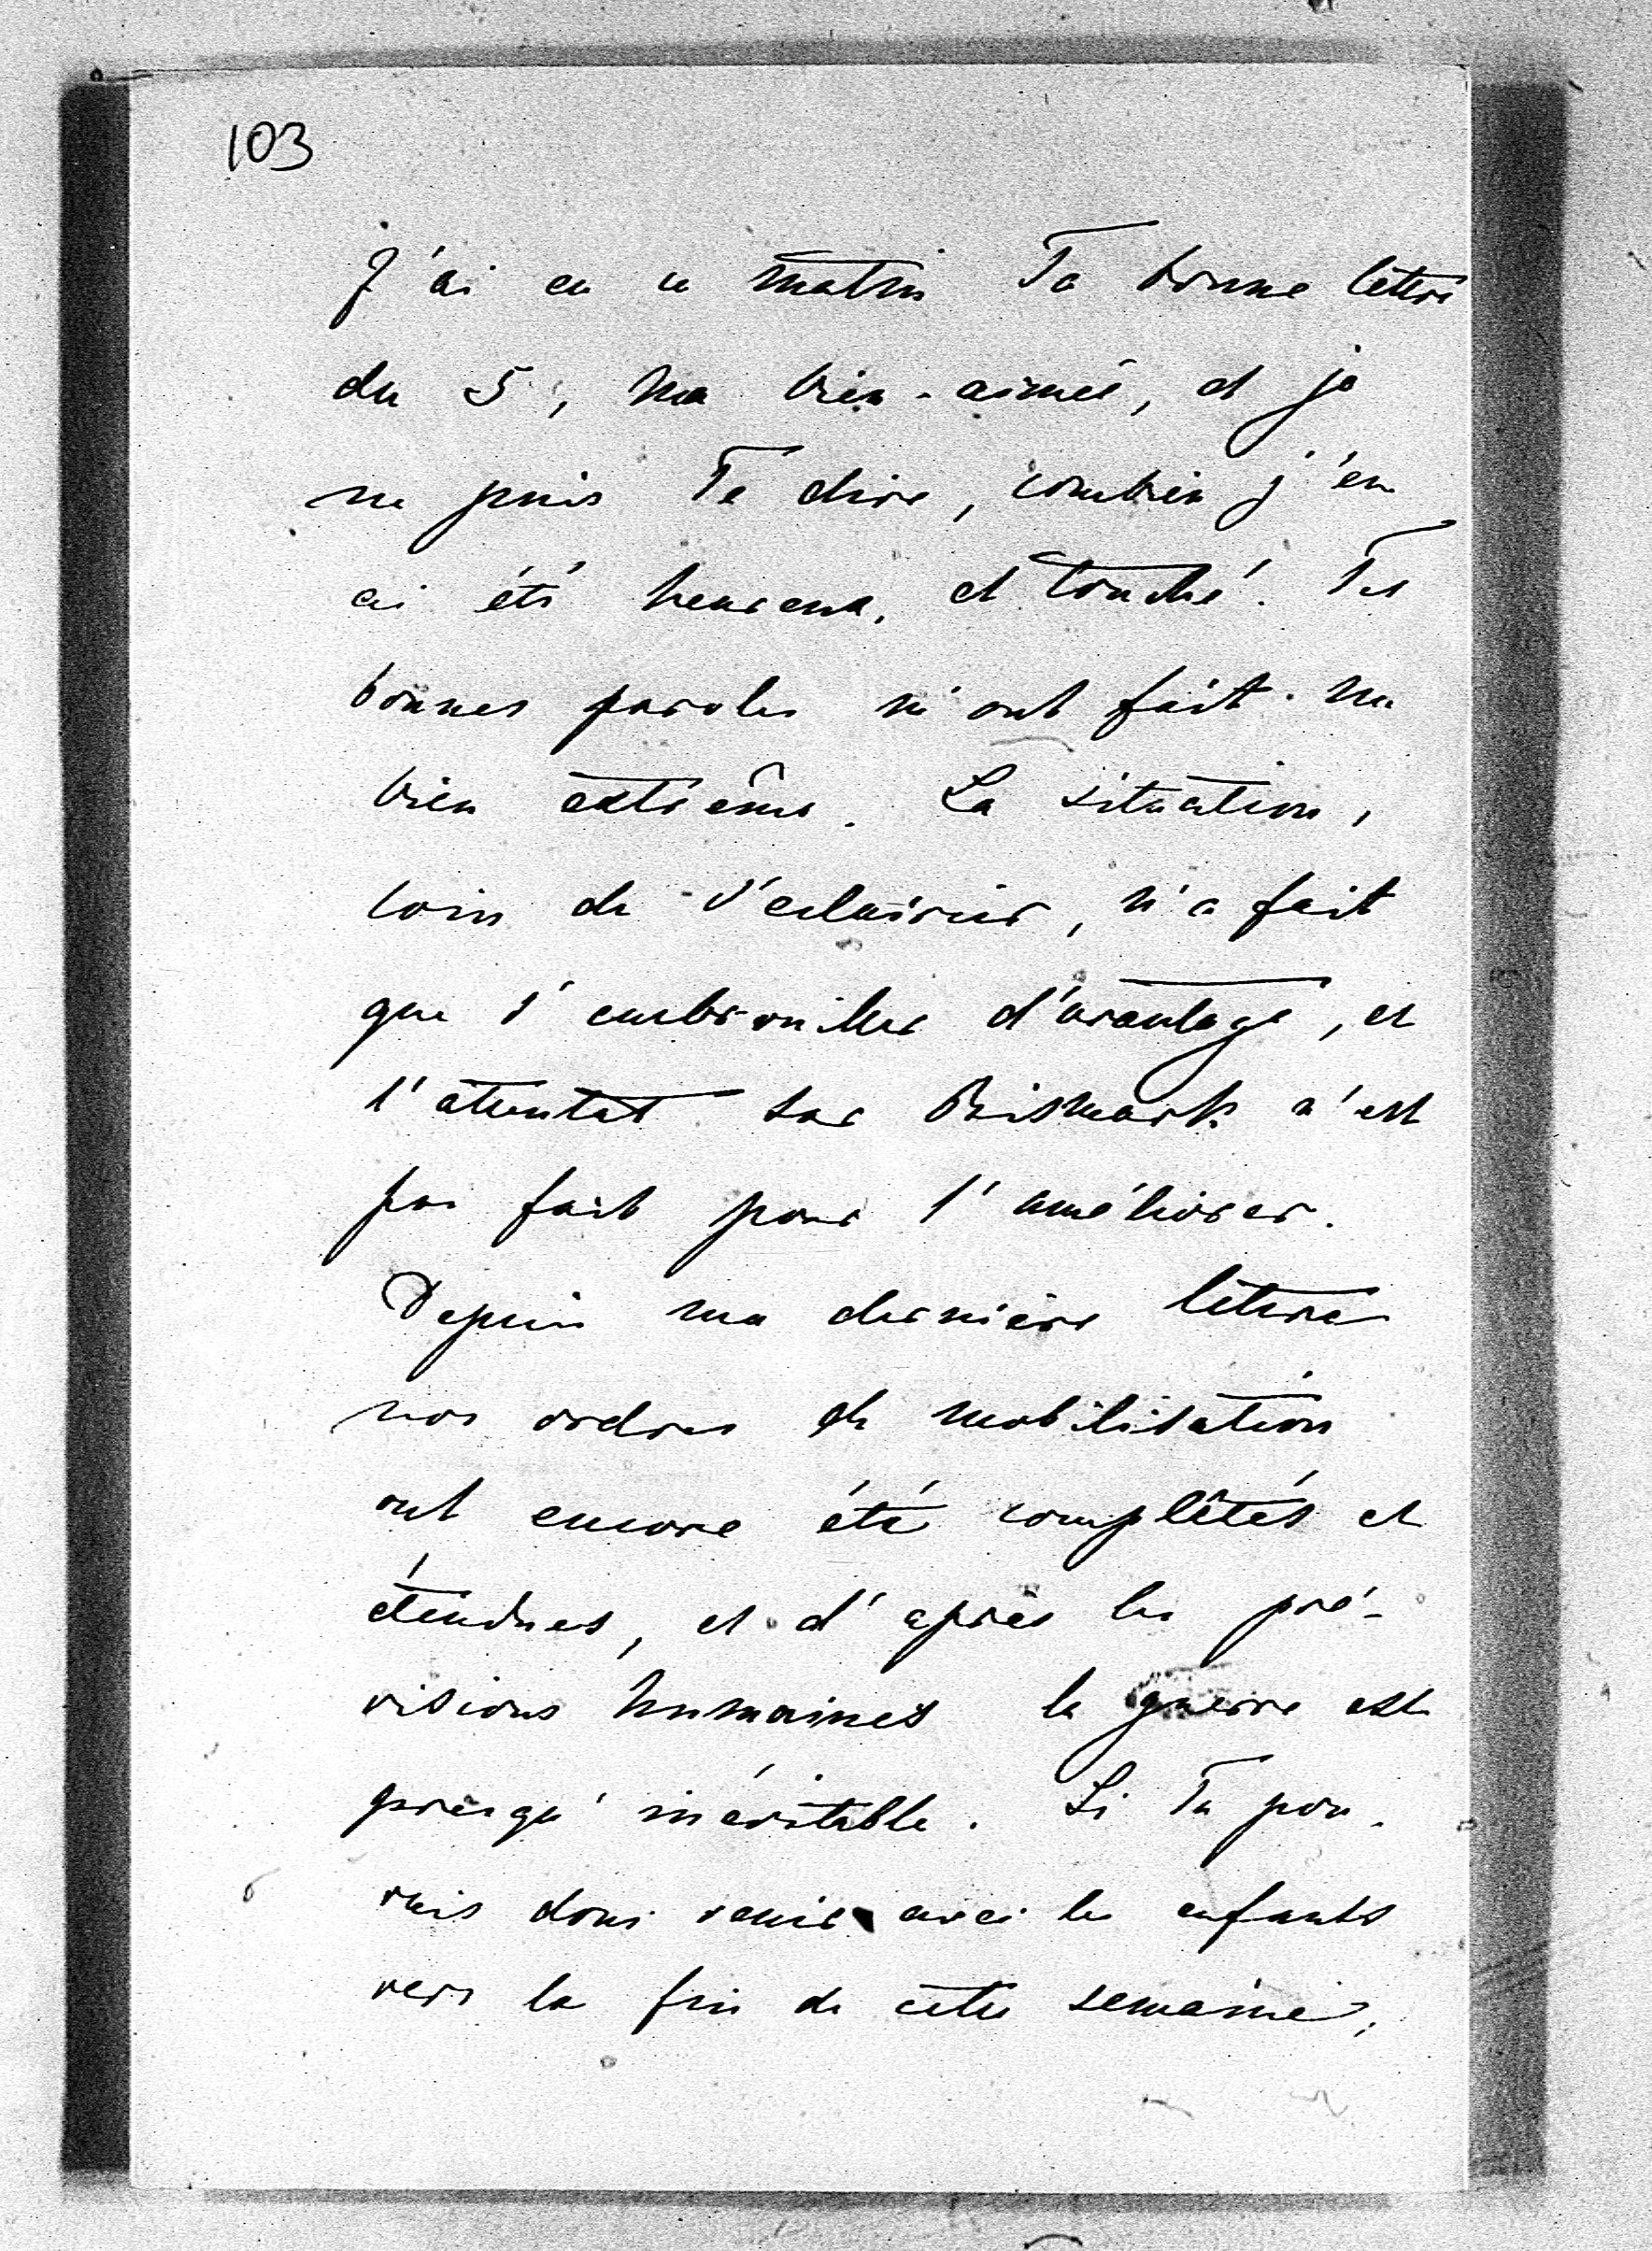 103
J'ai eu ce matin Ta bonne lettre
du 5, ma bien-aimée, et je
ne puis Te dire, combien j'en
ai été heureux, et touché. Tes
bonnes paroles m'ont fait un
bien extrême. La situation,
loin de s'eclaircir, n'a fait
que s'embrouiller d'avantage, et
l'attentat sur Bismark n'est
pas fait pour l'améliorer.
Depuis ma dernière lettre
nos ordres de mobilisation
ont encore été complêtés et
étendues, et d'après les pré-
visions humaines la guerre est
presqu'inévitable. Si Tu pou-
vais donc venir avec les enfants
vers la fin de cette semaine,